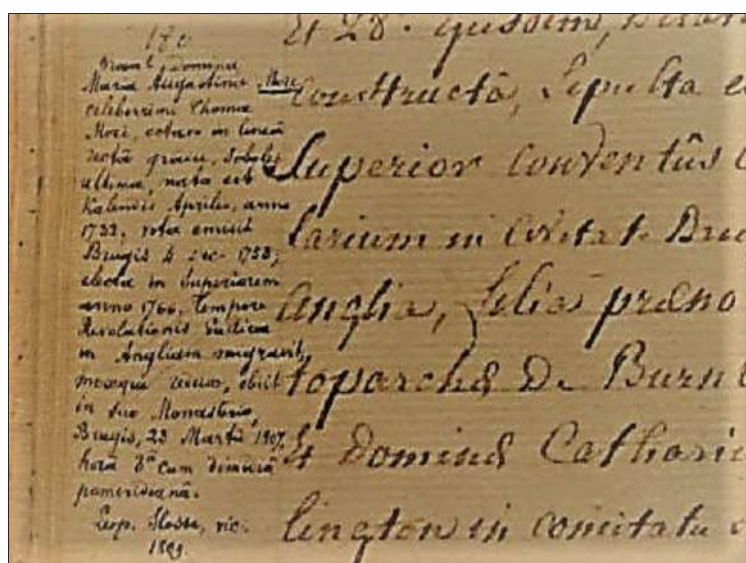 Maria Augustina More
celeberrimi Thomæ
Mori, octavo in lineâ
rectâ gradu, soboles
ultima, nata est
Kalendis Aprilis, anno
1733, vota emisit
Brugis 4 dec. 1753;
electa in Superiorem
anno 1766. Tempore
Revolutionis Gallicæ
in Angliam migravit,
obiit
in suo Monasterio,
Brugis, 23 Martii 1807,
horâ cum dimidiâ
pomeridianâ.
Leop. Slosse, vic.
Et
constructâ, Sepulta
Superior conventûs
larium in Civitate
Anglia, filia præno
toparchæ De Burn
et dominæ Cathari
lington in comitatu